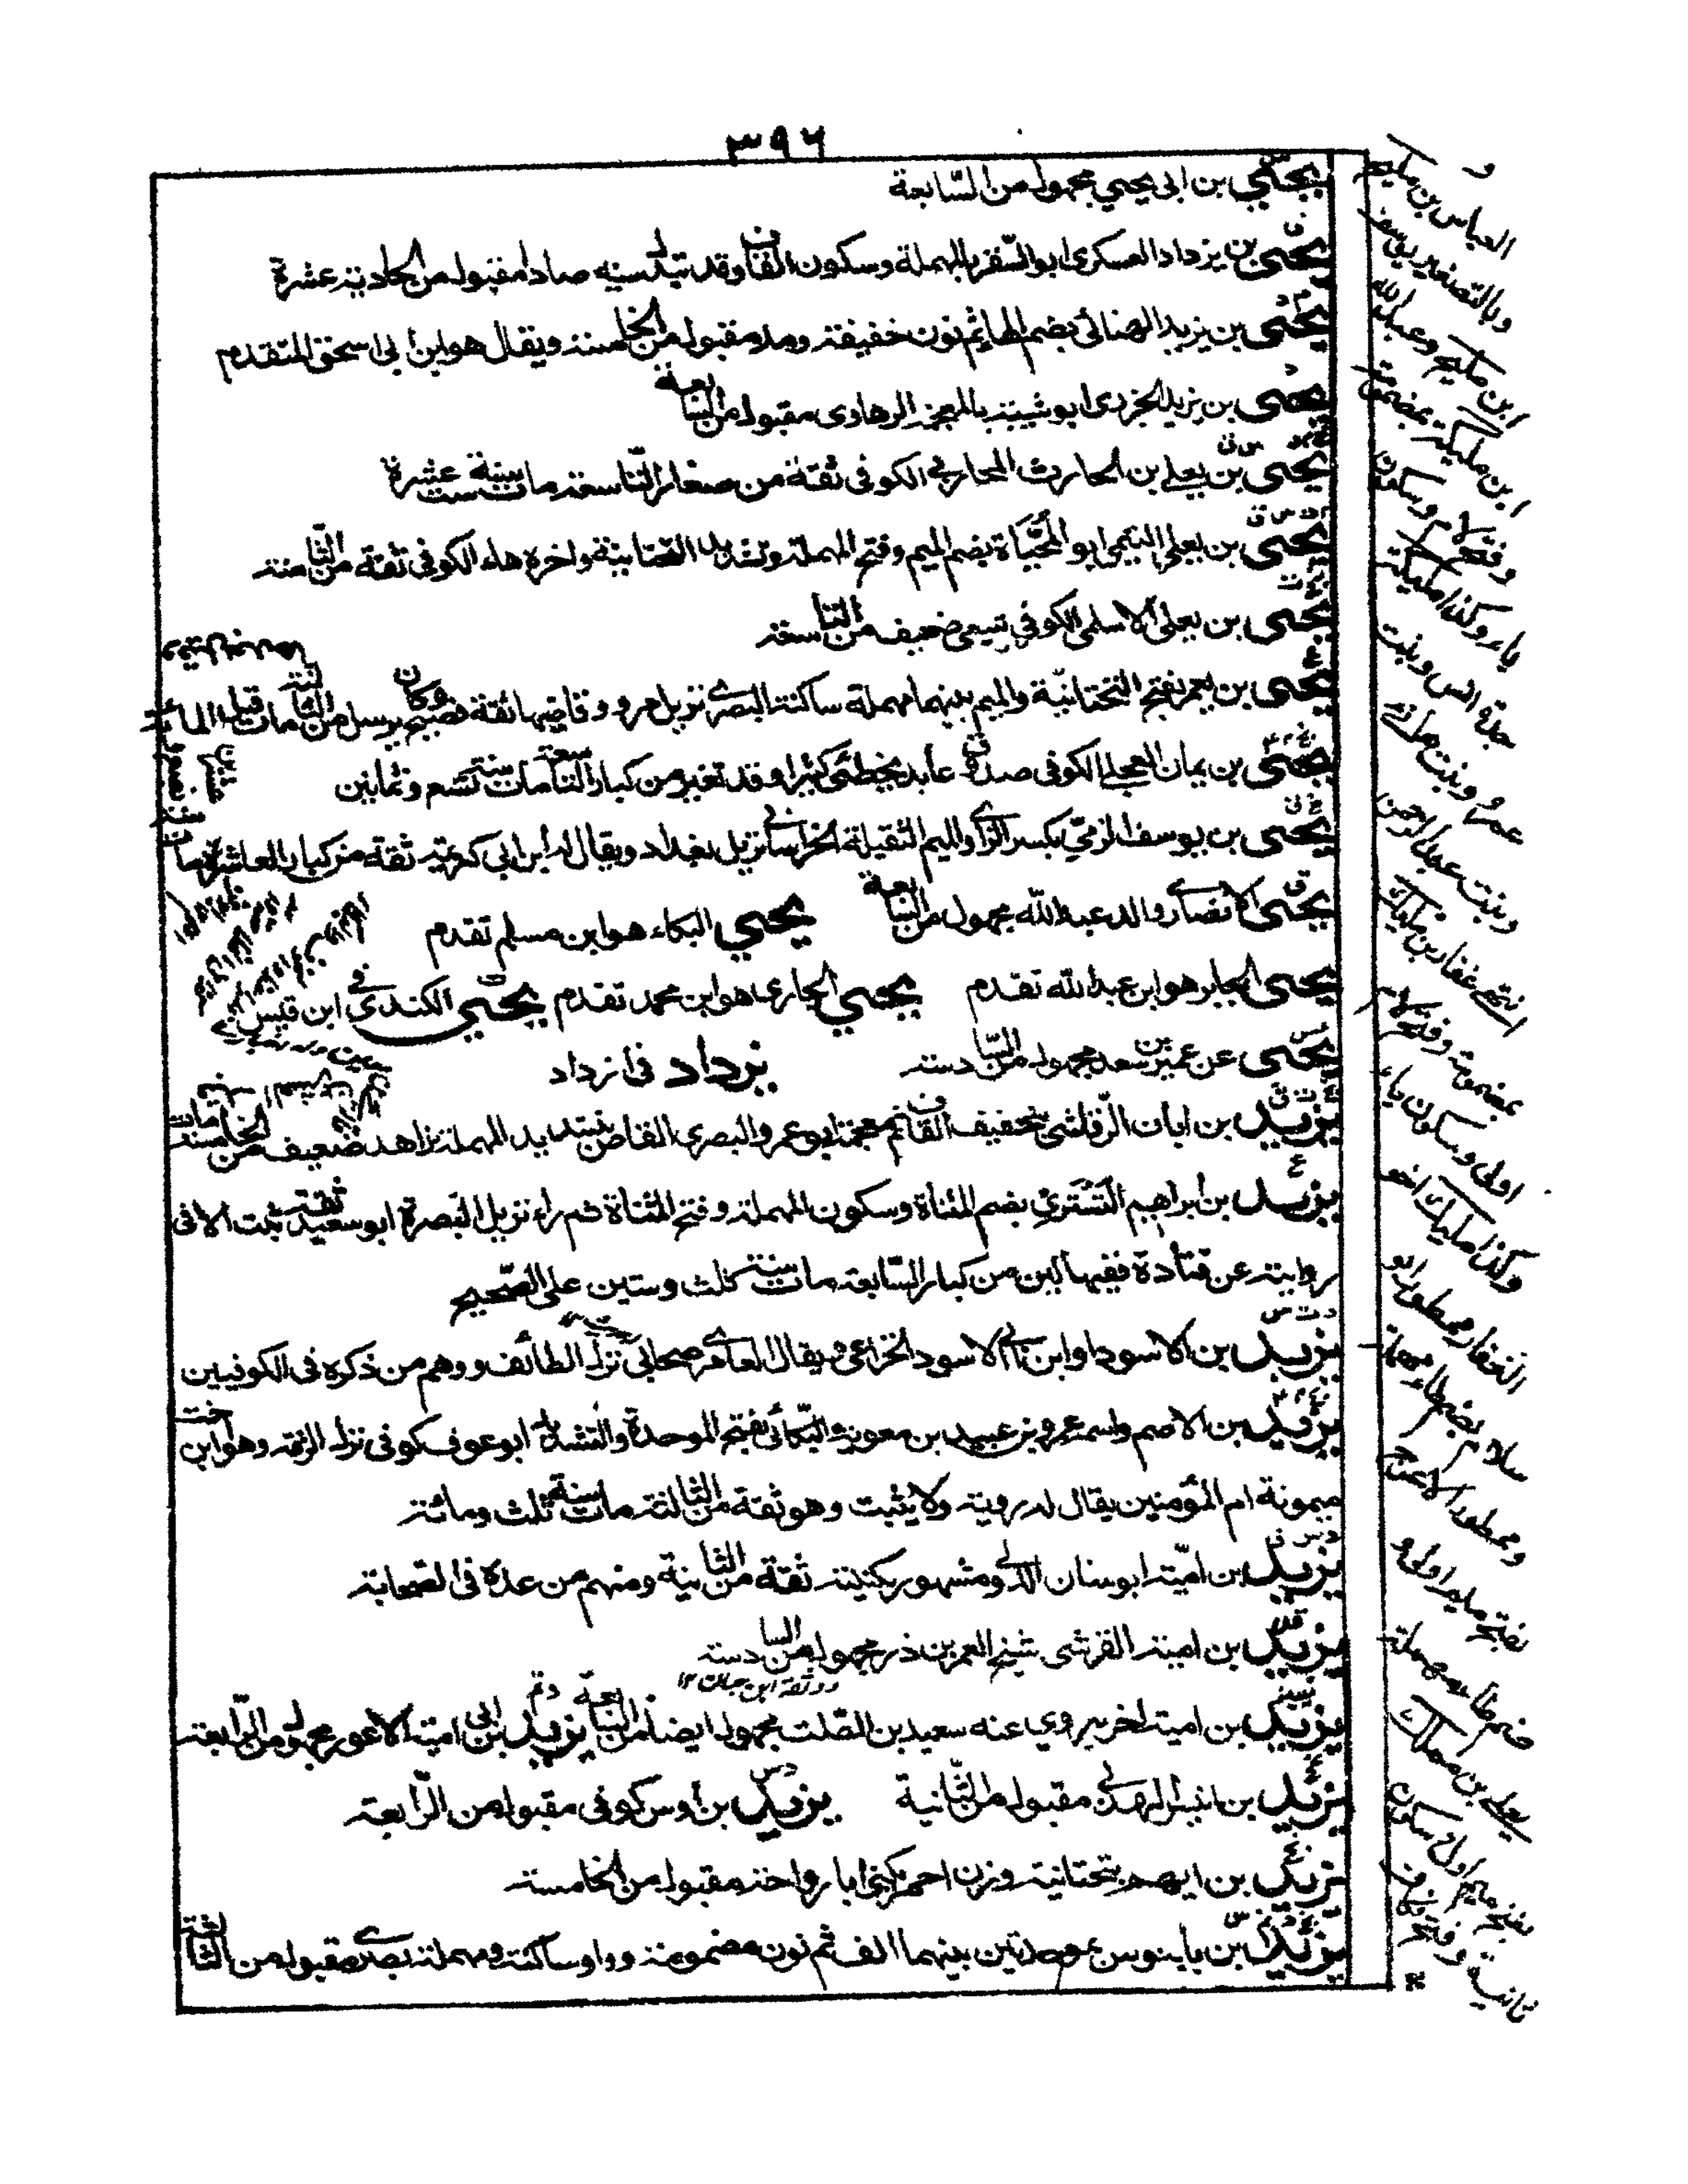 ٣٩٦
يحيى بن ابى يحيى مجهول من السّابعة
يحيى بن يزداد العسكرى ابو السّقر بالمهملة وسكون القاف وقد تبدل سينه صادا مقبول من الحادية عشرة
يحيى بن يزيد الهنائى بضم الهاء ثم نون خفيفة ومد مقبول من الخامسة ويقال هو ابن ابى اسحق المتقدم
يحيى بن يزيد الجزرى ابو شيبة بالمعجمة الرهاوى مقبول من السابعة
يحيى بن يعلى بن الحارث المحاربى الكوفى ثقة من صغار التّاسعة مات سنة ست عشرة
يحيى بن يعلى التيمى ابو المُحَيّاة بضم الميم وفتح المهملة وتشديد التحتانية واخره هاء الكوفى ثقة من الثّامنة
يحيى بن يعلى الاسلمى الكوفى شيعى ضعيف من التاسعة
يحيى بن يعمر بفتح التحتانيّة والميم بينهما مهملة ساكنة البصرى نزيل مرو وقاضيها ثقة فصيح وكان يرسل من الثالثة مات قبل المائة
يحيى بن يمان العجلى الكوفى صدوق عابد يخطئ كثيرا وقد تغير من كبار التاسعة مات سنة تسع وثمانين
يحيى بن يوسف الزمّى بكسر الزّاى والميم الثقيلة الخراسانى نزيل بغداد ويقال له ابن ابى كريمة ثقة من كبار العاشرة مات
يحيى الانصارى والد عبد الله مجهول من السابعة يحيى البكاء هو ابن مسلم تقدم
يحيى الجابر هو ابن عبد الله تقدم يحيى الجارى هو ابن محمد تقدم يحيى الكندى فى ابن قيس
يحيى عن عمير بن سعد مجهول من السّادسة يزداد فى ازداد
يزيد بن ابان الرّقاشى بتخفيف القاف ثم معجمة ابو عمرو البصرى القاص بتشديد المهملة زاهد ضعيف من الخامسة مات
يزيد بن ابراهيم التُّسْتَرى بضم المثناة وسكون المهملة وفتح المثناة ثم راء نزيل البصرة ابو سعيد ثقة ثبت الا فى
روايته عن قتادة ففيها لين من كبار السّابعة مات سنة ثلث وستين على الصّحيح
يزيد بن الاسود او ابن ابى الاسود الخزاعى ويقال العامرى صحابى نزل الطائف ووهم من ذكره فى الكوفيين
يزيد بن الاصم واسمه عمرو بن عبيد بن معوية البكّائى بفتح الموحدة والتشديد ابو عوف كوفى نزل الرقة وهو ابن اخت
ميمونة ام المؤمنين يقال له روية ولا يثبت وهو ثقة من الثالثة مات سنة ثلث ومائة
يزيد بن اميّة ابو سنان الدؤلى ومشهور بكنيته ثقة من الثانية ومنهم من عده فى الصحابة
يزيد بن امية القرشى شيخ لعمر بن ذر مجهول من السادسة
ووثقه ابن حبان ١٢
يزيد بن امية اخر يروى عنه سعيد بن الصّلت مجهول ايضا من السابعة يزيد بن ابى امية الاعور مجهول من الرّابعة
يزيد بن انيس الهذلى مقبول من الثّانية يزيد بن اوس كوفى مقبول من الرّابعة
يزيد بن ايهم بتحتانية وزن احمر يكنى ابا رواحة مقبول من الخامسة
يزيد بن بابنوس بموحدتين بينهما الف ثم نون مضمومة وواو ساكنة ومهملة بصرى مقبول من الثالثة
العباس بن مليح
وبالتصغير يوسف
ابن مليح وعبد الله
ابن مليكة بمضمومة
وفتح لام وسكون
ياء وكذا مليكة
جدة انس وبنت
عمرو وبنت
وبنت عبد الرحمن
بمضمومة وفتح لام
اولى وسكون ياء
وكذا مليك اخو
يعلى بن مملك
ثانية وفتح